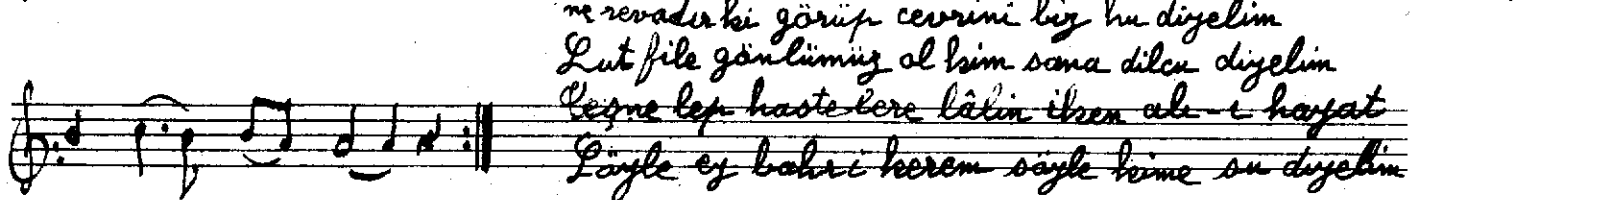 ne revadır ki görüp cevrini biz hu diyelim
Lutfile gönlümüz al kim sana dilcu diyelim
Teşne lep hastelere lâlin iken ab-ı hayat
Söyle ey bahri kerem söyle kime su diyelim